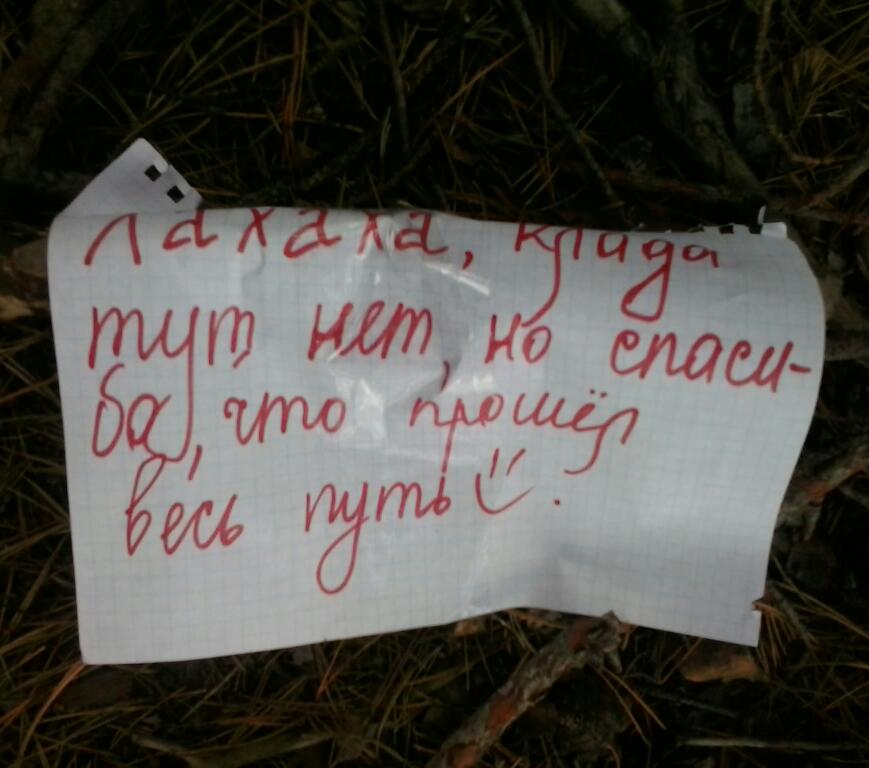 лахаха, клада
тут нет, но спаси-
ба, что прошёл
весь путь